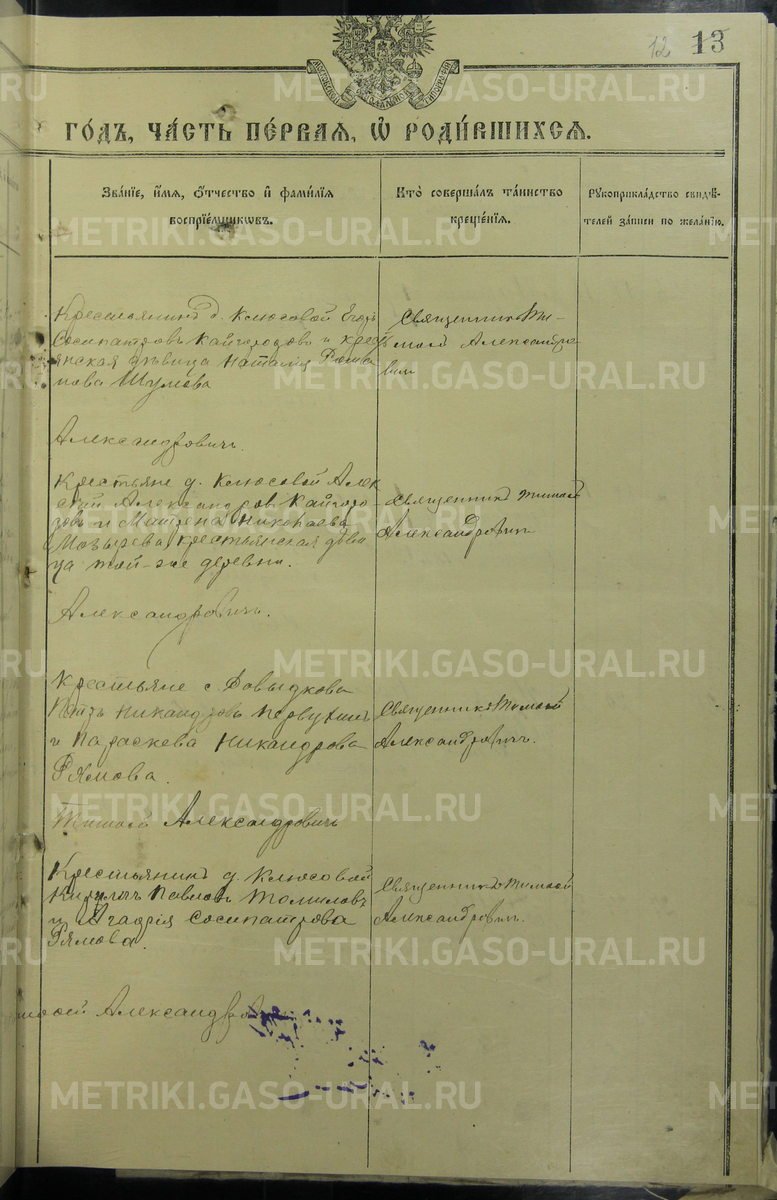 12 13
годъ, часть первая, ѡ родившихся.
Званіе, имя, отчество и фамилія
воспріемниковъ.
Кто совершалъ таинство
крещенія.
Рукоприкладство свидѣ-
телей записи по желанію.
Крестьянинъ д. Клюсовой Егоръ
Сосипатровъ Кайгородовъ и кресть
янская дѣвица Наталія Рома
нова Шумова
Священникъ Ти-
моѳей Александро
вич
Александровичъ.
Крестьяне д. Клюсовой Алек
сѣй Александров Кайгоро
довъ и Николаева
крестьянская дѣви
ца той-же деревни.
Священникъ Тимоѳей
Александрович
Александровичъ.
Крестьяне с Давыдкова
Петръ Никандровъ Первухинъ
и Параскева Никандрова
Рямова.
Священникъ Тимоѳей
Александровичъ.
Тимоѳей Александровичъ
Крестьянинъ д. Клюсовой
Кириллъ Павловъ Томиловъ
и Агафія Сосипатрова
Рямова.
Священникъ Тимоѳей
Александровичъ.
Александро
METRIKI.GASO-URAL.RU